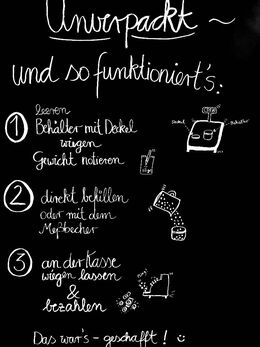 Unverpackt ~
und so funktioniert's:
1 leeren
Behälter mit Deckel
wiegen
Gewicht notieren
Deckel Behälter
2 direkt befüllen
oder mit dem
Meßbecher
3 an der Kasse
wiegen lassen
&
bezahlen
Das war's - geschafft! :)